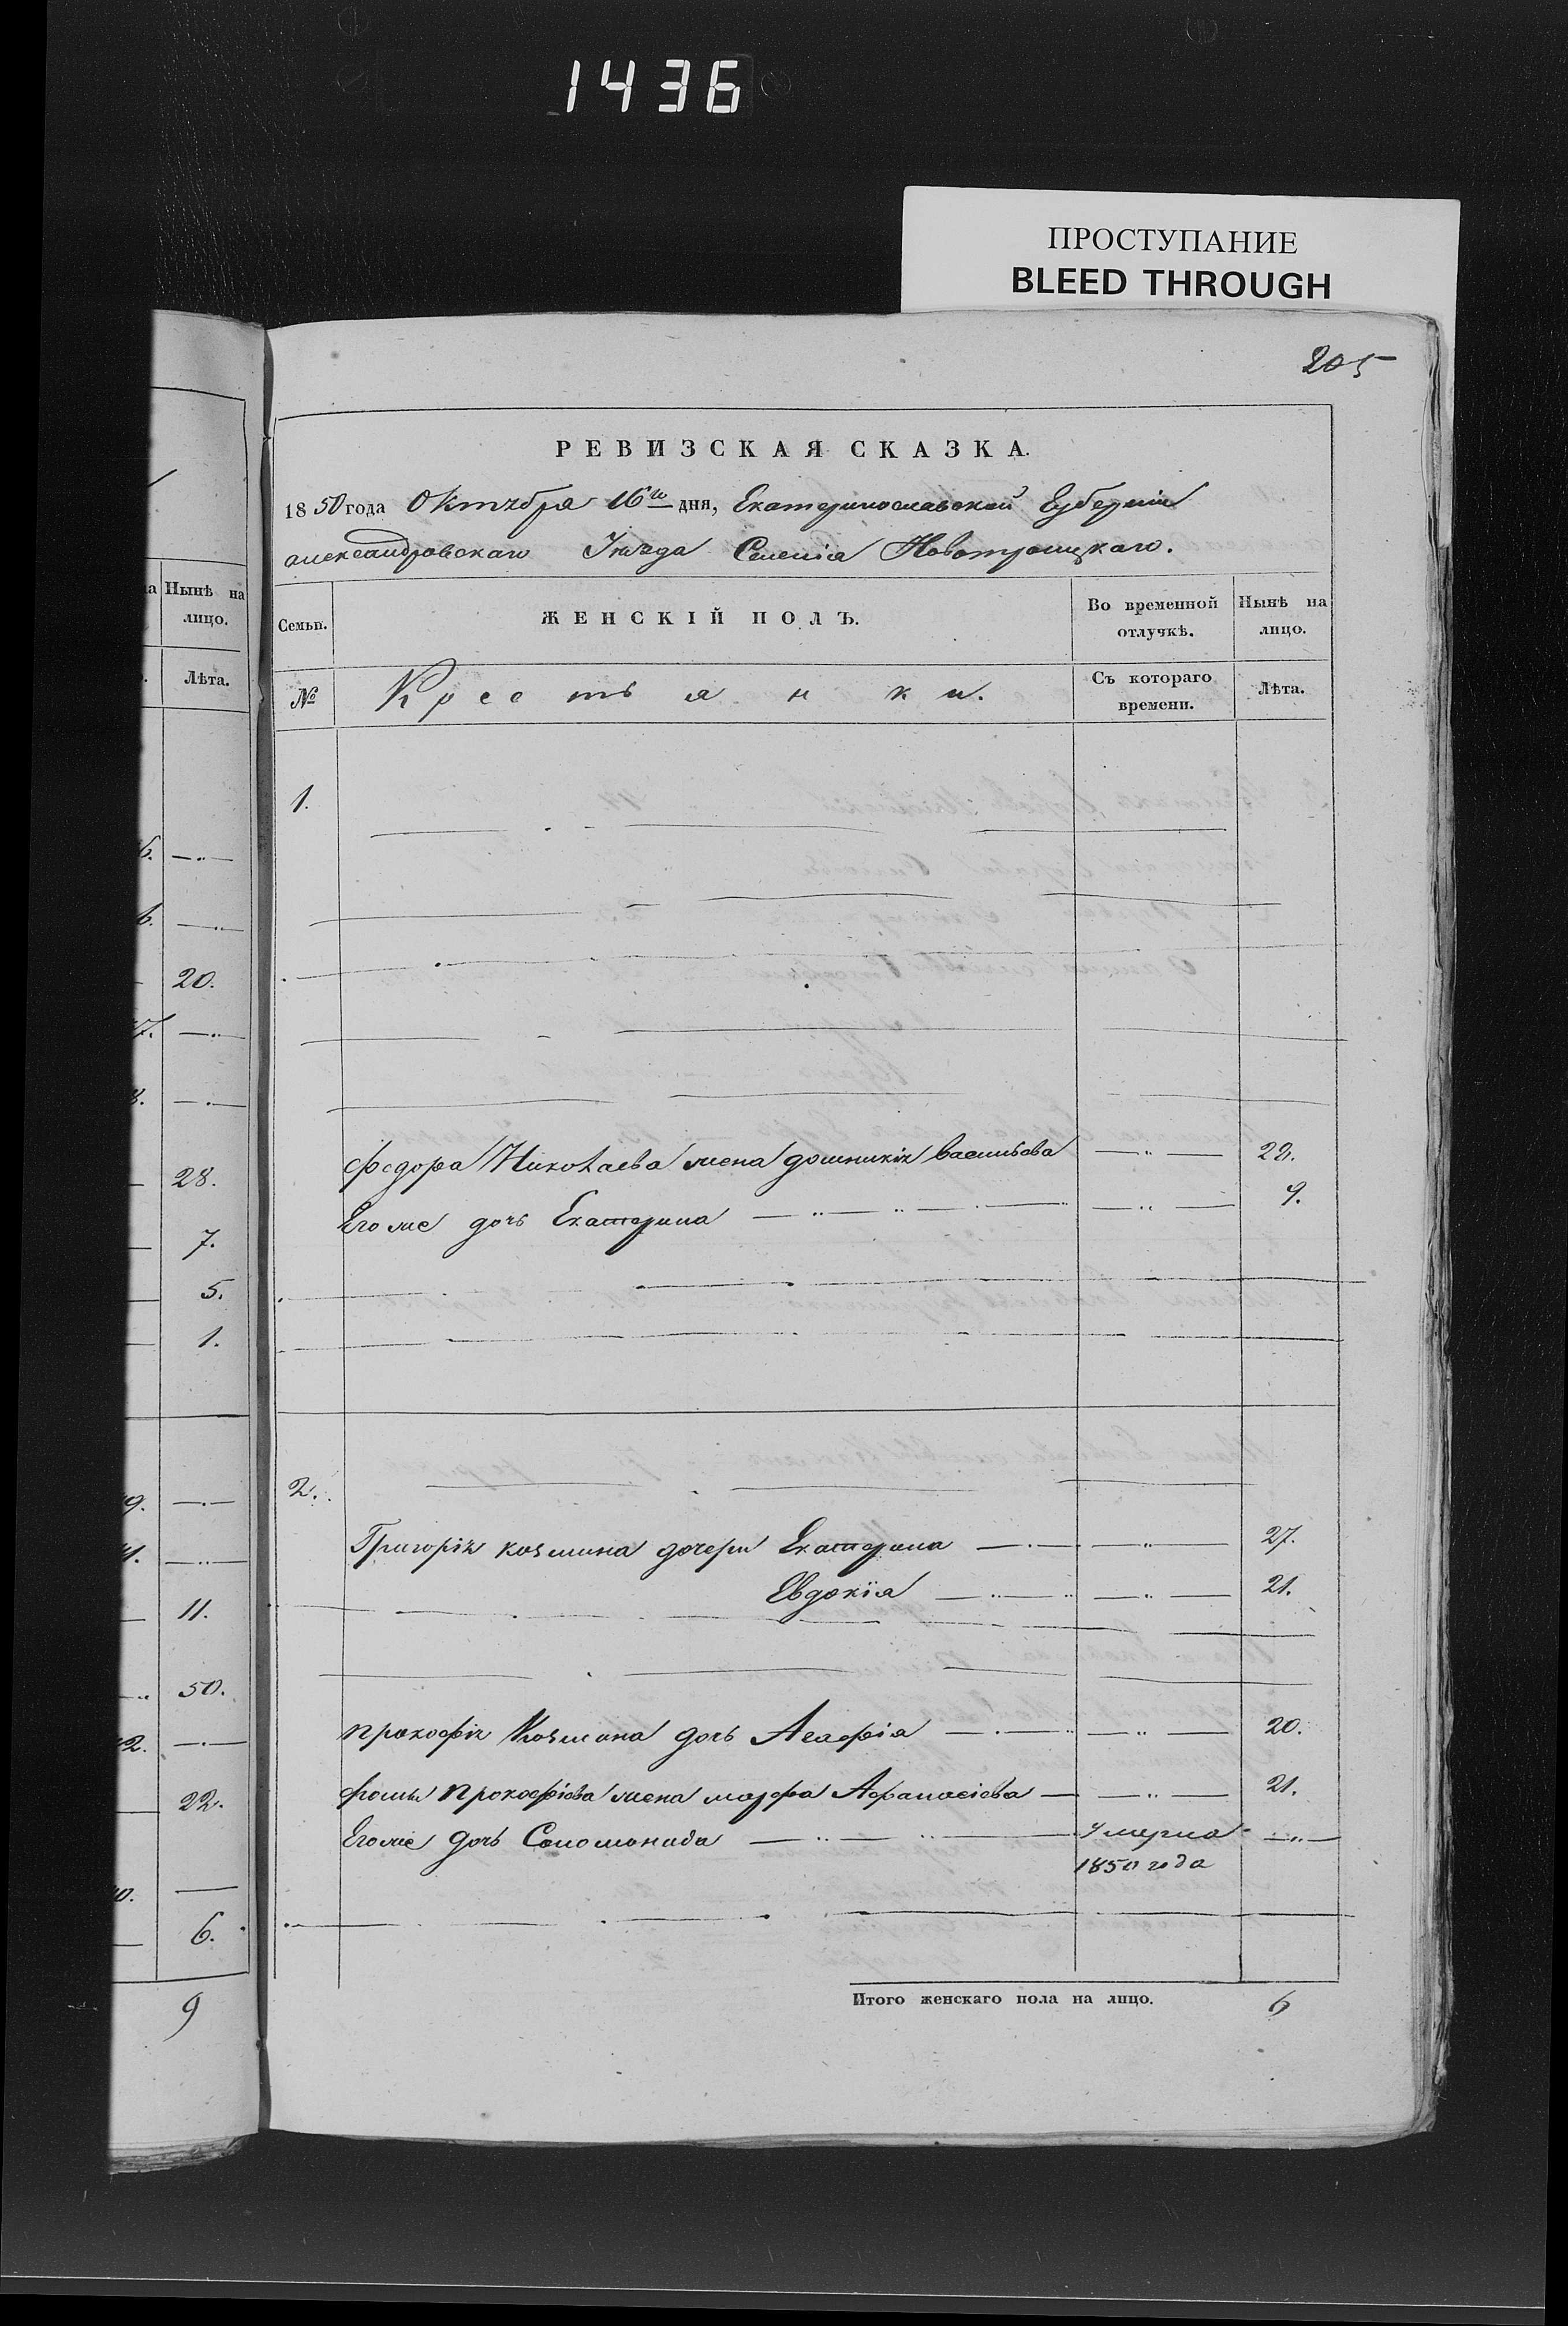 1436
ПРОСТУПАНИЕ
BLEED THROUGH
205
РЕВИЗСКАЯ СКАЗКА.
1850 года Октября 16го дня, Екатеринославской Губернiи
александровскаго Уѣзда Селенiя Новотроицкаго.
Нынѣ на лицо.
Лѣта.
Семьи.
ЖЕНСКІЙ ПОЛЪ.
Во временной отлучкѣ.
Нынѣ на лицо.
№
Крестьянки.
Съ котораго времени.
Лѣта.
1.
20.
28.
Федора Николаева жена домникiя васильева — „ — 28.
7.
Его же дочь Екатерина — „ — 9.
5.
1.
2.
Григорiя козмина дочери Екатерина — „ — 27.
Евдокiя — „ — 21.
11.
50.
прокофiя Козмина дочь Агафiя — „ — 20.
22.
фомы прокофiева жена марфа Афанасiева — „ — 21.
Его же дочь Соломонида — умерла — „ —
1850 года
6.
9
Итого женскаго пола на лицо. 6